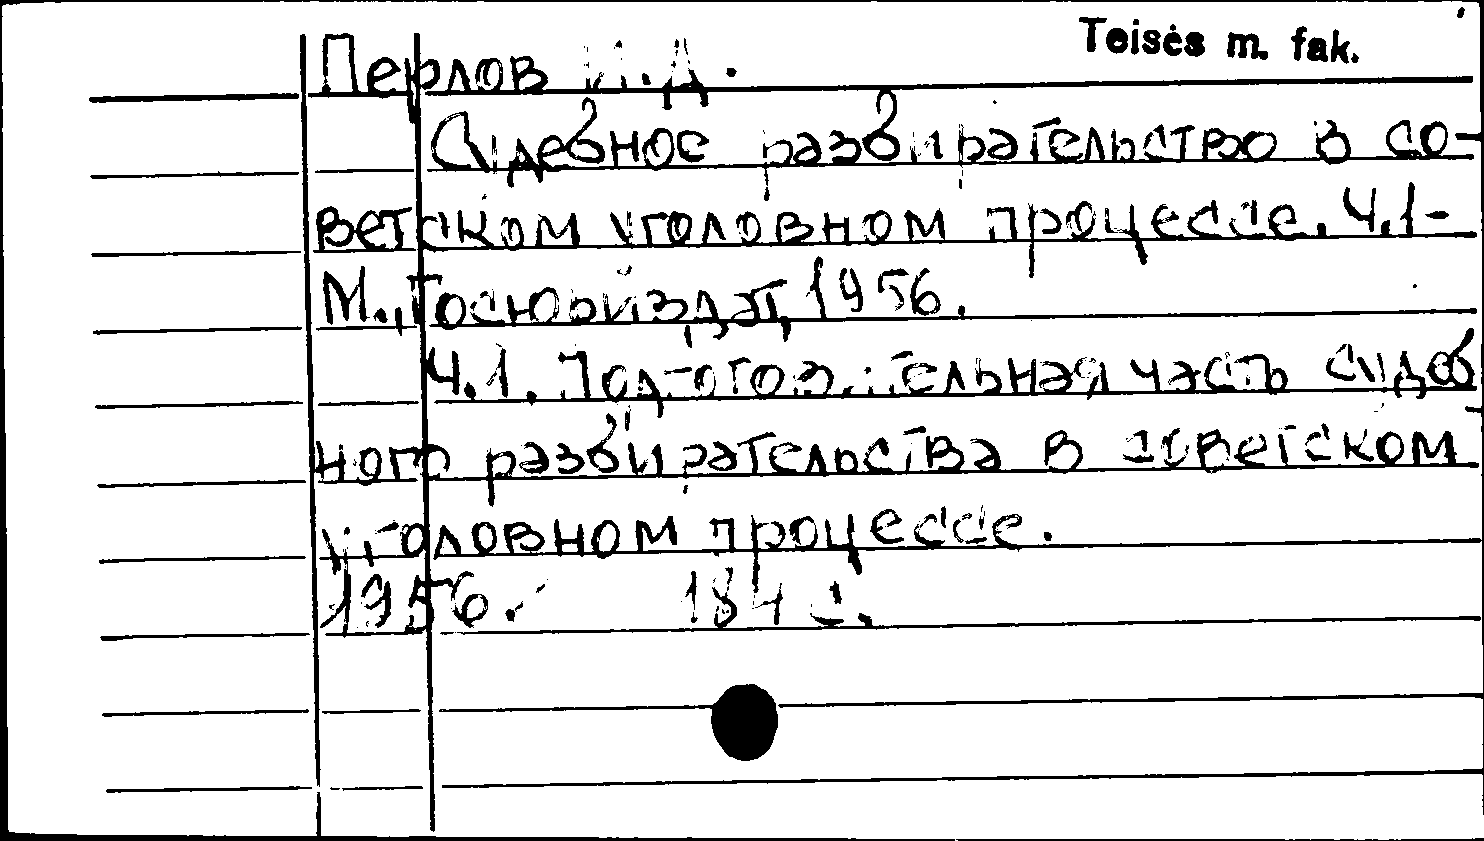 Teisės m. fak.
Перлов И.Д.
Судебное разбирательство в со-
ветском уголовном процессе. Ч.1-
М., Госюриздат, 1956.
Ч.1. Подготовительная часть судеб
ного разбирательства в советском
уголовном процессе.
1956. 184 с.